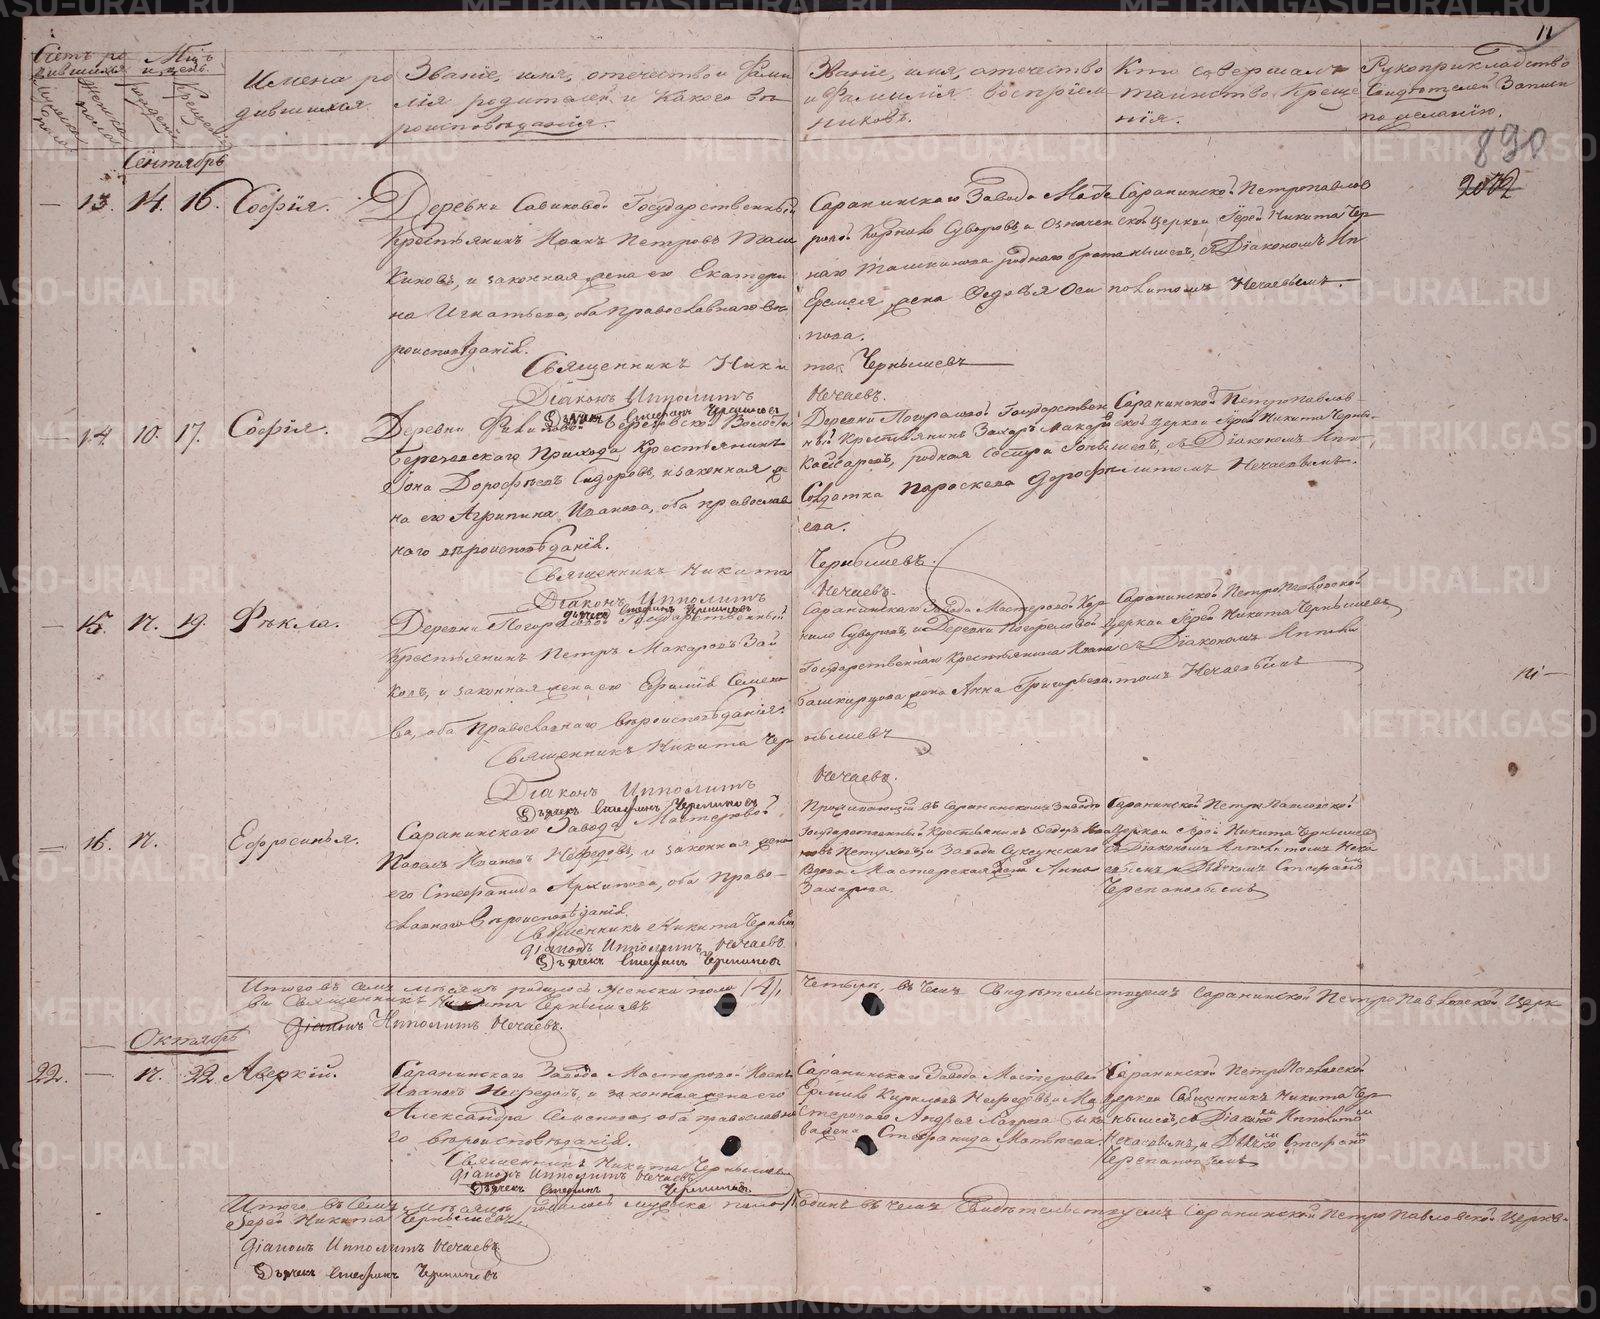 11
Счетъ ро
дившихся
Мѣсяцъ
и день
Мужеска
пола
Женска
пола
рожденія
Крещенія
Имена ро
дившихся.
Званіе, имя, отечество и фами
лія родителей, и какого вѣ
роисповѣданія.
Званіе, имя, отечество
и фамилія воспріем
никовъ.
Кто совершалъ
таинство креще
нія.
Рукоприкладство
свидѣтелей записи
по желанію.
890
2002
Сентябрь
— 13. 14. 16. Софія.
Деревни Савиковой Государственный
Крестьянинъ Иванъ Петровъ Таш
киновъ, и законная жена его Екатери
на Игнатьева, оба православнаго вѣ
роисповѣданія.
Священникъ Ники
Діаконъ Ипполитъ
Саранинскаго Завода Масте
ровой Корнило Суворовъ, и означен
наго Ташкинова роднаго брата
Еремея жена Федосья Оси
пова.
та Чернышевъ
Нечаевъ.
Саранинской Петропавлов
ской церкви Іерей Никита Чер
нышевъ, съ Діакономъ Ип
политомъ Нечаевымъ.
— 14 10. 17. Софія.
Березовскаго Прихода Крестьянинъ
Іона Дорофѣевъ Сидоровъ, и законная же
на его Агрипина Иванова, оба православ
наго вѣроисповѣданія.
Священникъ Никита
Діаконъ Ипполитъ
Деревни Погорѣлой Государствен
ный Крестьянинъ Захаръ Макаровъ
родная сестра
Солдатка Параскева Дорофѣ
ева.
Чернышевъ.
Нечаевъ.
Саранинской Петропавлов
ской церкви Іерей Никита Черны
шевъ, съ Діакономъ Иппо
литомъ Нечаевымъ.
— 15. 17. 19. Ѳекла.
Деревни Погорѣловой Государственный
Крестьянинъ Петръ Макаровъ Зай
ковъ, и законная жена его Ефимія Семено
ва, оба Православнаго вѣроисповѣданія.
Священникъ Никита Чер
Діаконъ Ипполитъ
Саранинскаго Завода Мастеровой Кор
нило Суворовъ, и Деревни Погорѣловой
Государственнаго Крестьянина Ивана
Башкирцова жена Анна Григорьева.
нышевъ
Нечаевъ.
Саранинской Петропавловской
церкви Іерей Никита Чернышевъ,
съ Діакономъ Ипполи
томъ Нечаевымъ
— 16. 17. Ефросинья.
Саранинскаго Завода Мастеровой
Павелъ Ивановъ Нефедовъ, и законная жена
его Стефанида Архипова, оба право
славнаго вѣроисповѣданія.
Священникъ Никита Чернышев
Діаконъ Ипполитъ Нечаевъ
Проживающій въ Саранинскомъ Заводѣ
Государственный Крестьянинъ Федоръ Ива
новъ Пѣтуховъ, и Завода Суксунскаго
Анна
Захарова.
Саранинской Петропавловской
церкви Іерей Никита Чернышев
съ Діакономъ Ипполитомъ Неча
евымъ и Дьячкомъ Стефано
Черепановымъ
Итого въ семъ мѣсяцѣ родилось женска пола (4)
четыре, въ чемъ свидѣтельствуемъ Саранинской Петропавловской церк
ви Священникъ Никита Чернышевъ
Діаконъ Ипполитъ Нечаевъ.
Октябрь
22. — 17. 22. Аверкій.
Саранинскаго Завода Мастеровой Иванъ
Ивановъ Нефедовъ, и законная жена его
Александра Семенова, оба православна
го вѣроисповѣданія.
Священникъ Никита Чернышевъ
Діаконъ Ипполитъ Нечаевъ
Саранинскаго Завода Мастеровой
Ермило Кириловъ Нефедовъ, и Ма
стероваго Андрея
жена Стефанида Матвѣева.
Саранинской Петропавловской
церкви Священникъ Никита Чер
нышевъ, съ Діакономъ Ипполитом
Нечаевымъ, и Дьячкомъ Стефано
Черепановымъ
Итого въ семъ мѣсяцѣ родилось мужска пола (1)
одинъ въ чемъ свидѣтельствуемъ Саранинской Петропавловской церкви
Іерей Никита Чернышевъ
Діаконъ Ипполитъ Нечаевъ
METRIKI.GASO-URAL.RU